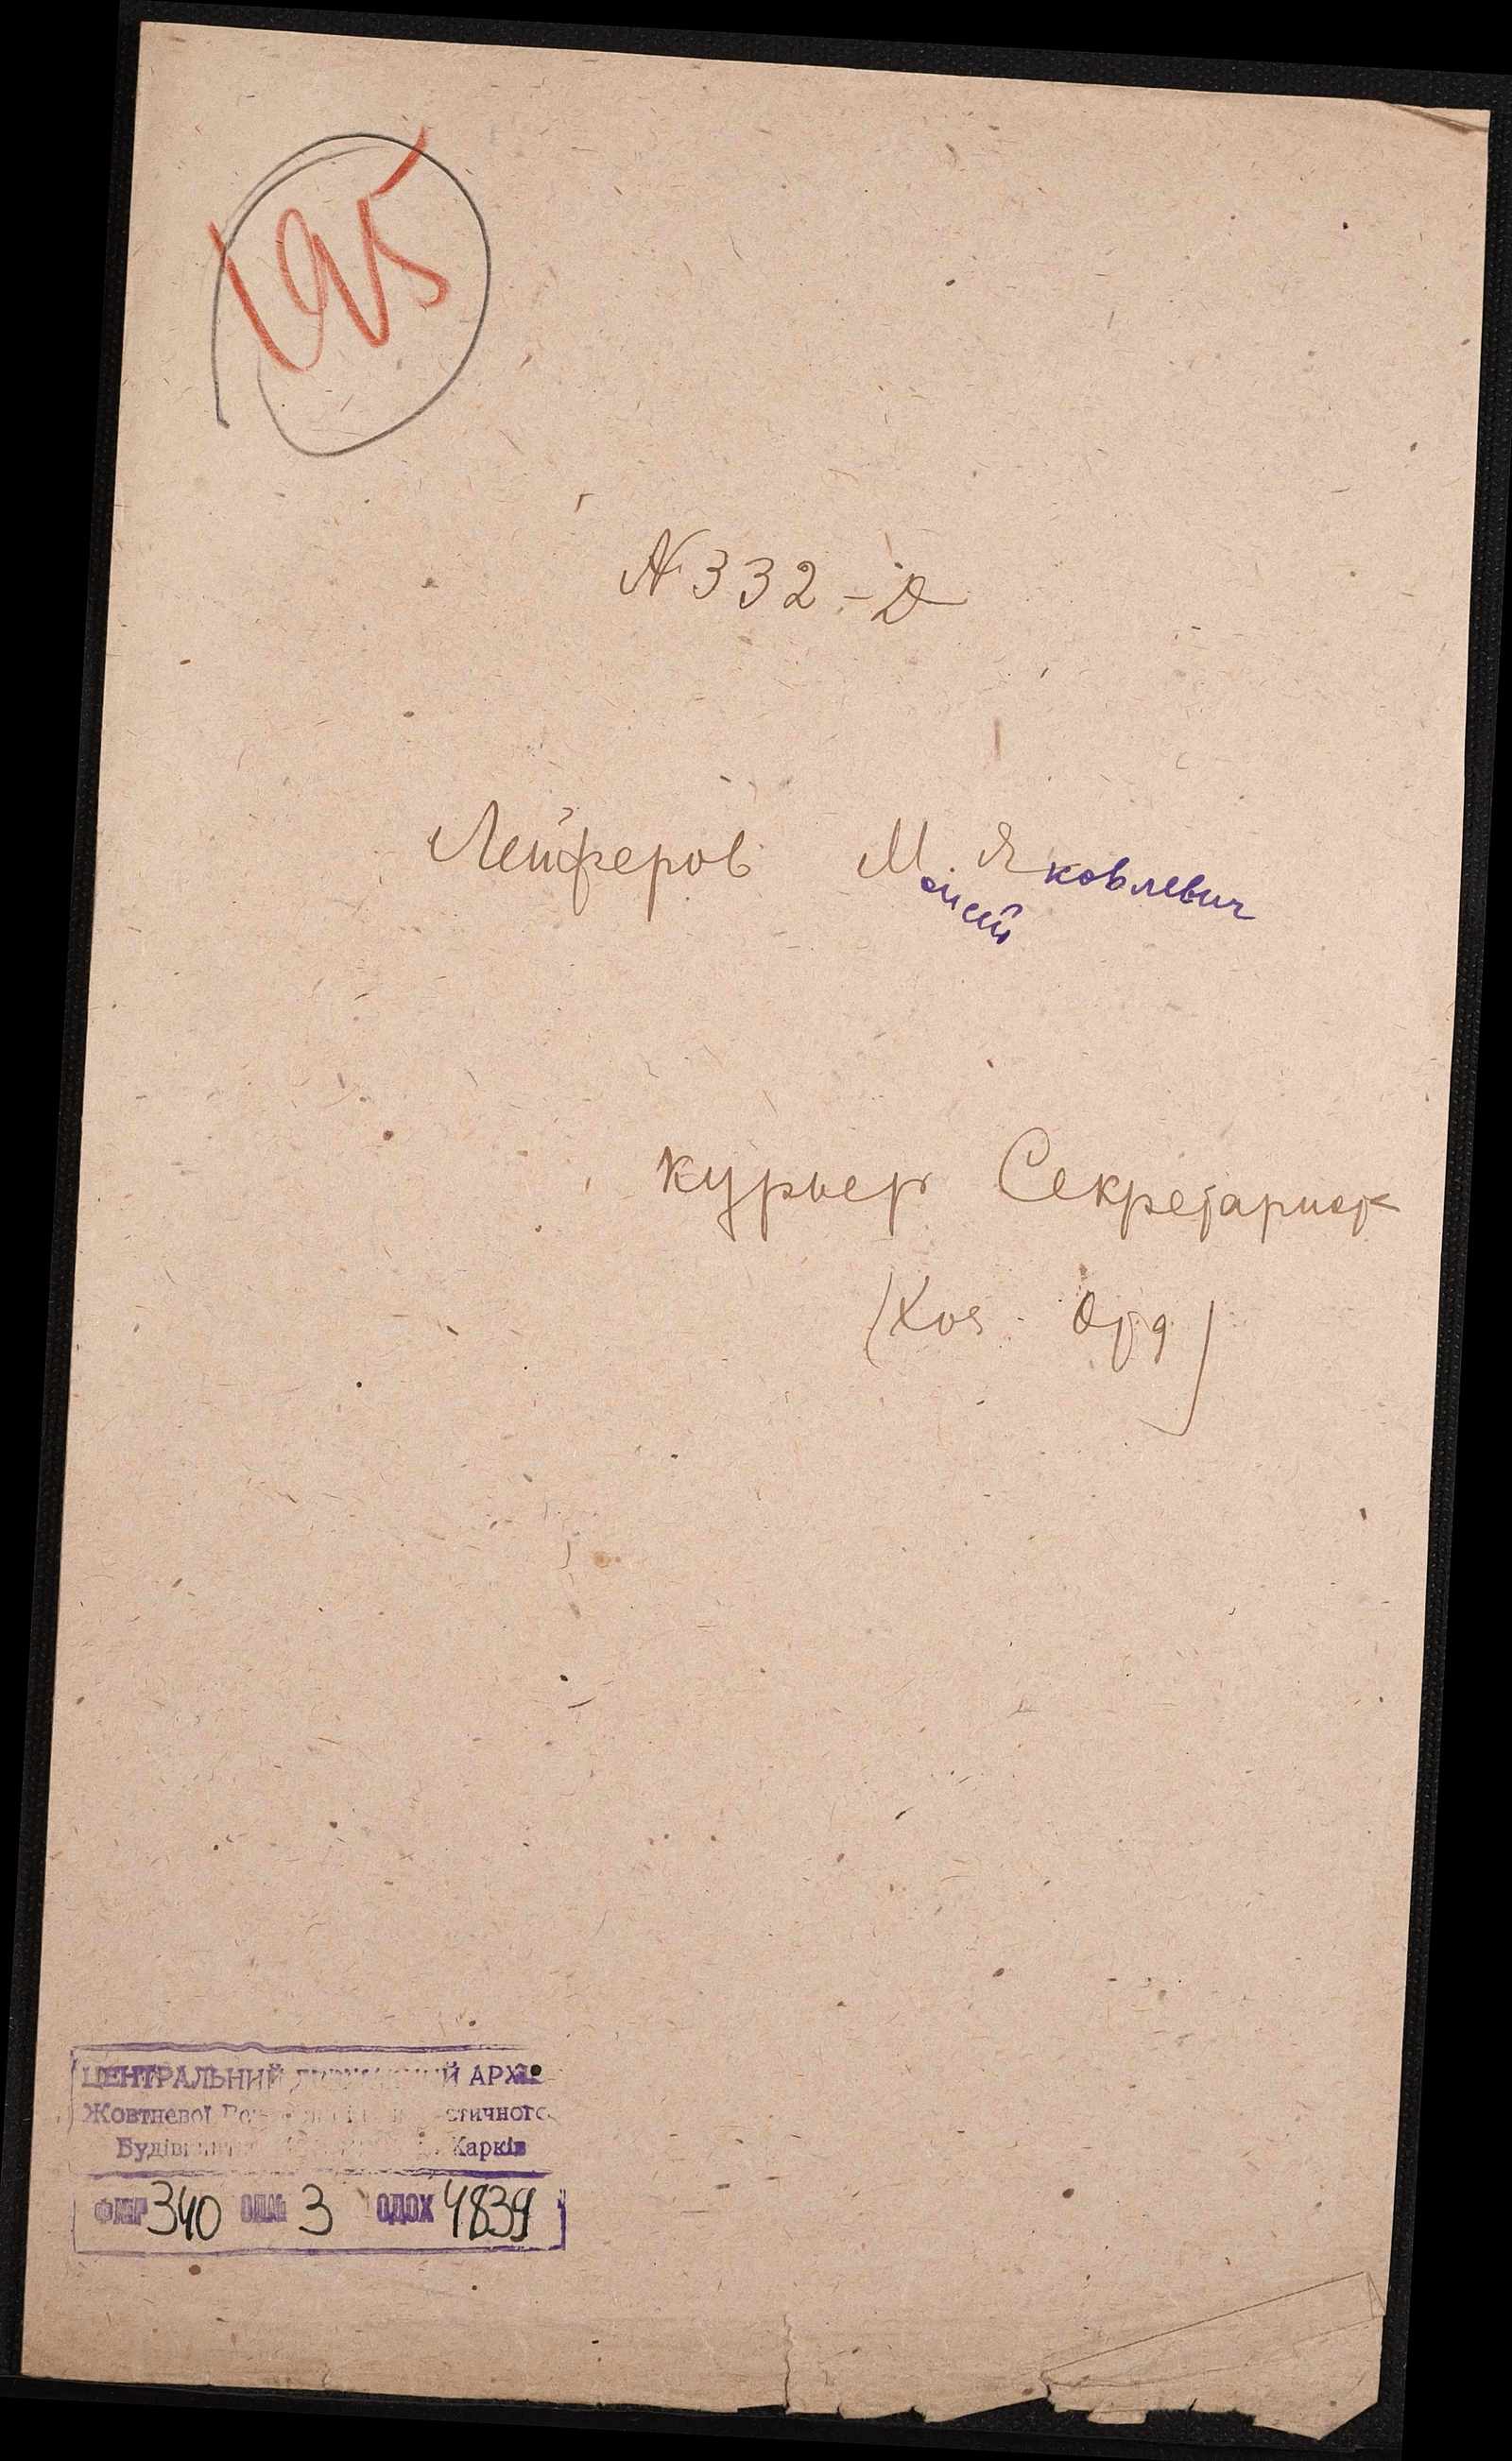 195
№ 332-Д
Лейферов М.оисей Яковлевич
курьер Секретариат
(Хоз. Отд)
ЦЕНТРАЛЬНИЙ АРХІВ
Жовтневої
Харків
ФОНД 340 ОПИС 3 ОДОХ 4839